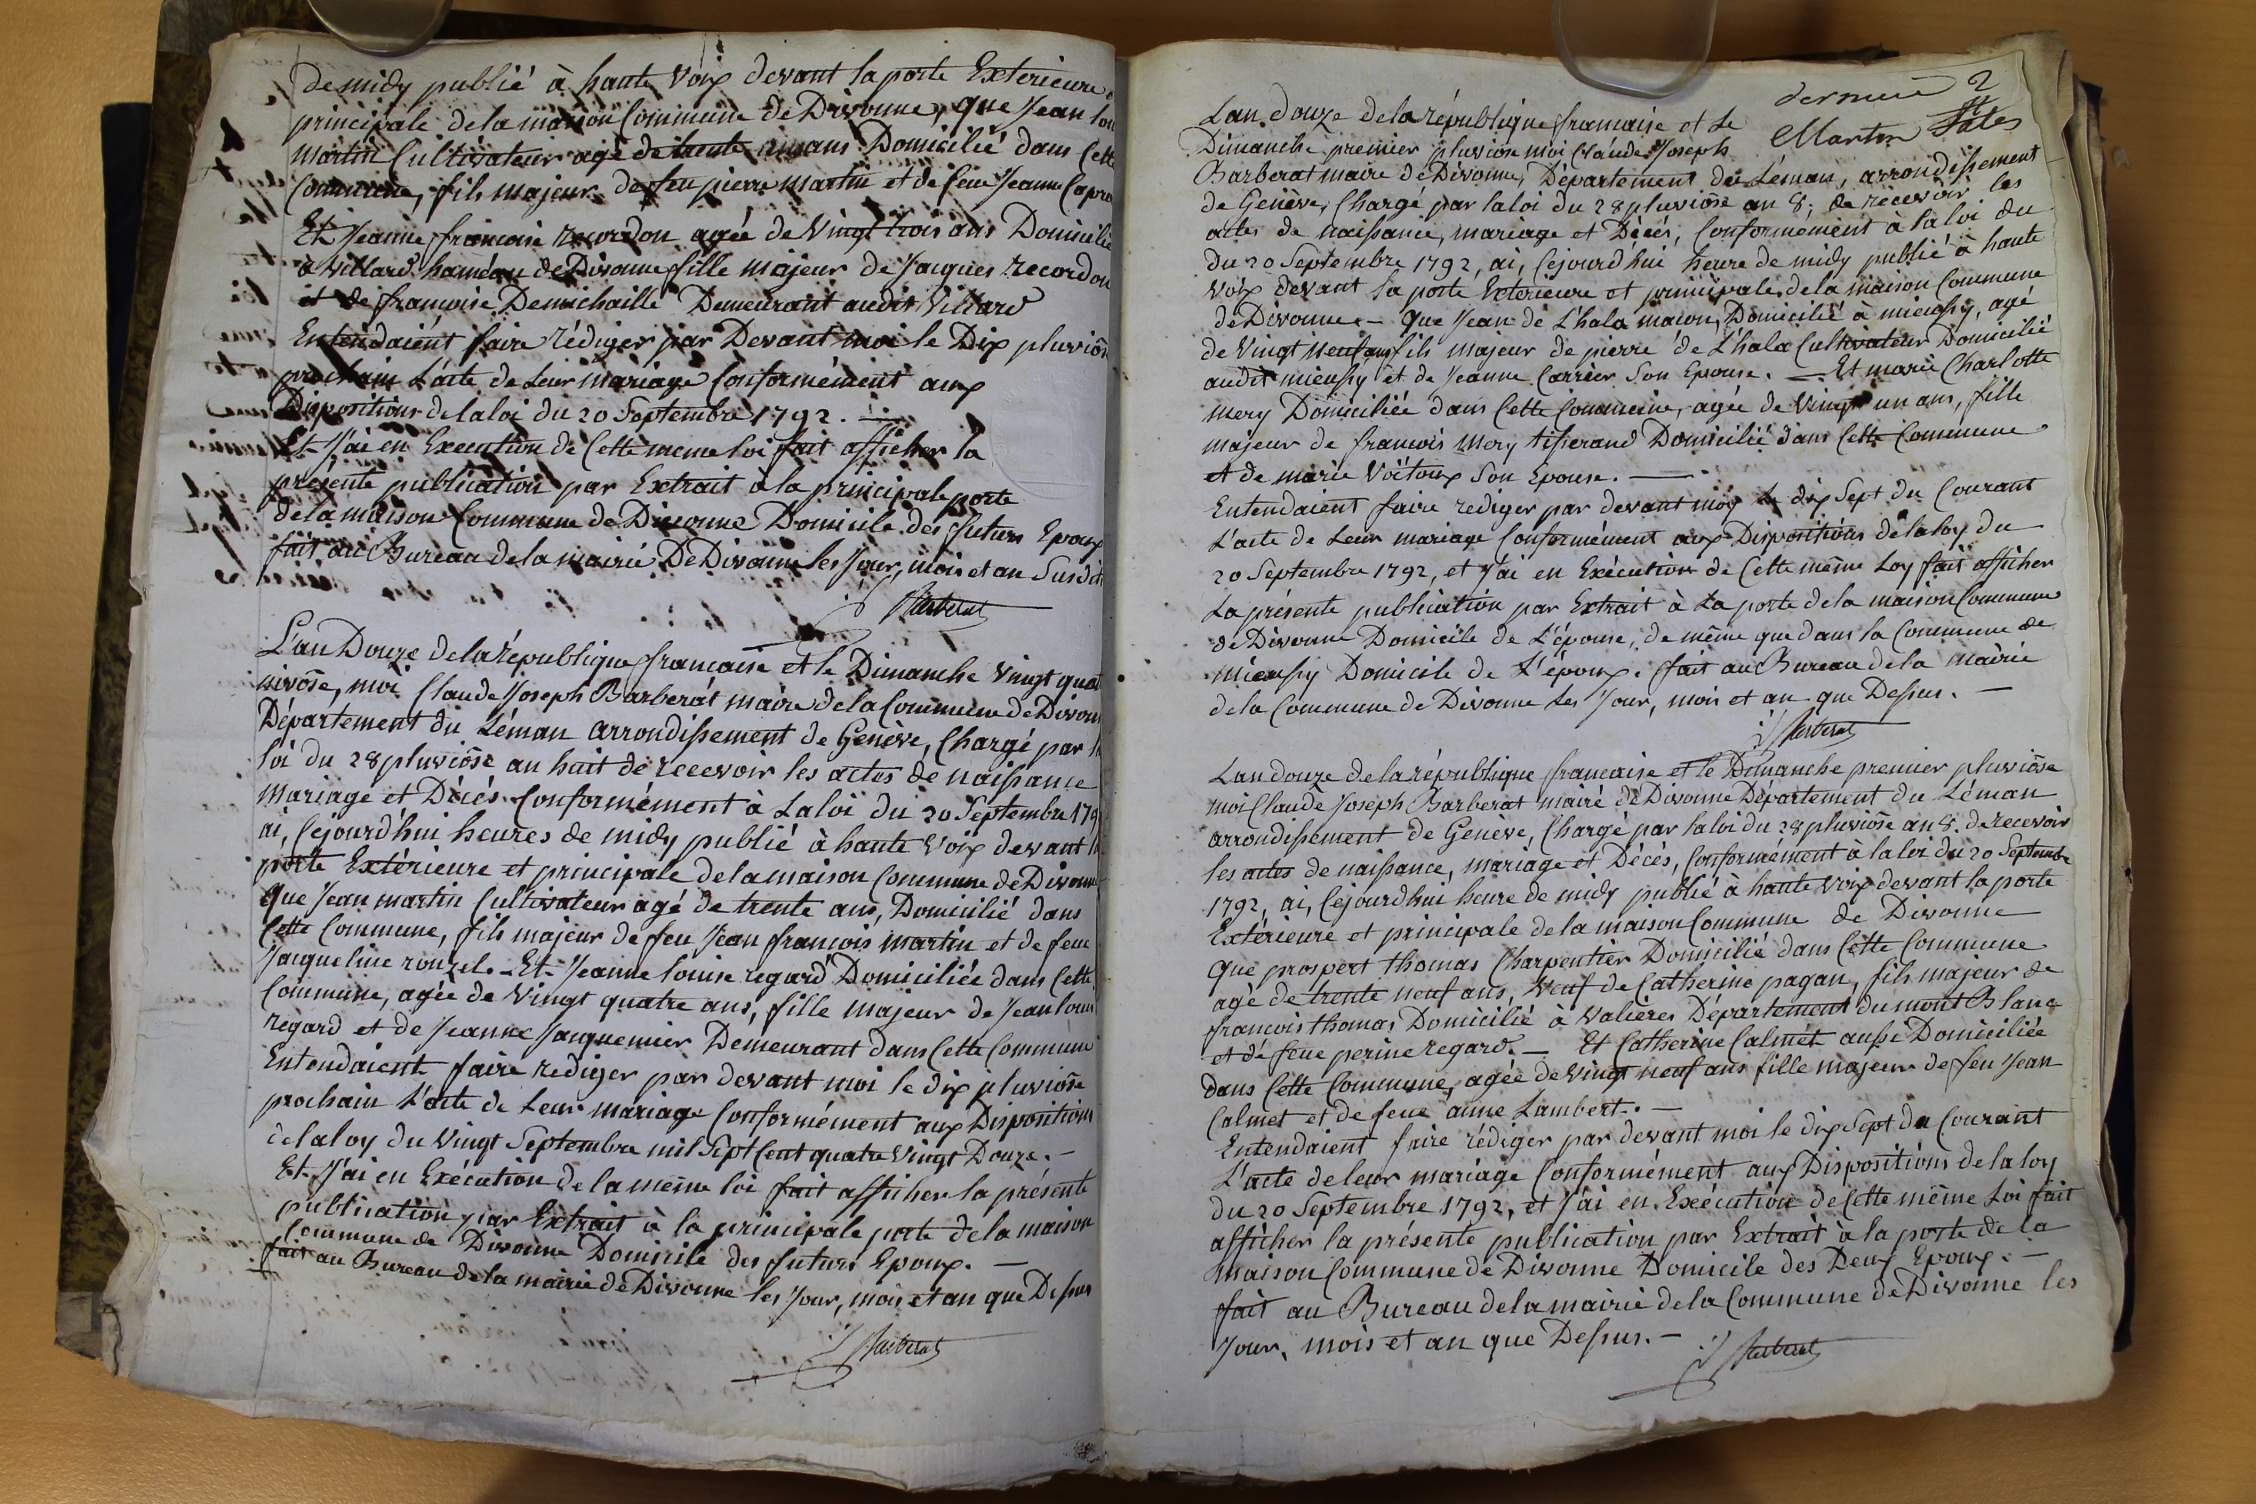 de midy publié à haute Voix devant la porte Exterieure
principale de la maison Commune de Divonne, que Jean lou
martin Cultivateur agé de trente ans Domicilié dans Cette
Commune, fils majeur de feu pierre martin et de feue Jeanne Capro
Et Jeanne francoise recordon agée de Vingt trois ans Domicilié
à Villard haméau de Divonne fille majeur de Jacques recordon
et de francoise Demichaille Demeurant audit Villard
Entendaient faire rédiger par Devant moi le Dix pluviôse
prochain L'acte de Leur mariage Conformément aux
Dispositions de la loi du 20 Septembre 1792. —
Et J'ai en Execution de Cette meme loi fait afficher la
présente publication par Extrait à la principale porte
de la maison Commune de Divonne Domicile des futurs Epoux
fait au Bureau de la mairie De Divonne les Jour, mois et an Susdit
Barberat
L'an Douze de la république francaise et le Dimanche Vingt quat
nivôse, moi Claude Joseph Barberat maire de la Commune de Divon
Département du Léman arrondissement de Genève, Chargé par la
loi du 28 pluviôse an huit de recevoir les actes de naissance
mariage et Décés Conformément à La loi du 20 Septembre 179
ai, Cejourd'hui heures de midy publié à haute Voix devant la
porte Extérieure et principale de la maison Commune de Divonne
que Jean martin Cultivateur agé de trente ans, Domicilié dans
Cette Commune, fils majeur de feu Jean francois martin et de feue
Jacqueline rouzel. - Et Jeanne louise regard Domiciliée dans Cette
Commune, agée de Vingt quatre ans, fille majeur de Jean louis
regard et de Jeanne Jacquemier Demeurant dans Cette Commune
Entendaient faire rediger par devant moi le dix pluviôse
prochain L'acte de Leur mariage Conformément aux Dispositions
de la loy du Vingt Septembre mil Sept Cent quatre Vingt Douze. -
Et J'ai en Exécution de la même loi fait afficher la présente
publication par Extrait à la principale porte de la maison
Commune de Divonne Domicile des futurs Epoux. —
fait au Bureau de la mairie de Divonne les Jour, mois et an que Dessus
Barberat
derniere 2
Martin
Lan douze de la république francaise et Le
Dimanche premier pluviose moi Claude Joseph
Barberat maire de Divonne, Département du Léman, arrondissement
de Genève, Chargé par la loi du 28 pluviôse an 8, de recevoir les
actes de naissance, mariage et Décés, Conformément à la loi du
du 20 Septembre 1792, ai, Cejourd'hui heure de midy publié à haute
voix devant la porte Exterieure et principale de la maison Commune
de Divonne. — que Jean de L'hala macon, Domicilié à mieussy, agé
de Vingt neuf ans fils majeur de pierre de L'hala Cultivateur Domicilié
audit mieussy et de Jeanne Carrier Son Epouse. — Et marie Charlotte
mery Domiciliée dans Cette Commune, agée de Vingt un ans, fille
majeur de francois mery tisserand Domicilié dans Cette Commune
et de marie Voitoux Son Epouse. —
Entendaient faire rediger par devant moy Le dix Sept du Courant
L'acte de Leur mariage Conformément aux Dispositions de la loy du
20 Septembre 1792, et J'ai en Exécution de Cette même Loy fait afficher
La présente publication par Extrait à La porte de la maison Commune
de Divonne Domicile de L'épouse, de même que dans la Commune de
mieussy Domicile de L'époux. fait au Bureau de la mairie
de la Commune de Divonne Les Jour, mois et an que Dessus. —
Barberat
Lan douze de la république francaise et le Dimanche premier pluviôse
moi Claude Joseph Barberat maire de Divonne Département du Léman
arrondissement de Genève, Chargé par la loi du 28 pluviôse an 8. de recevoir
les actes de naissance, mariage et Décés, Conformément à la loi du 20 Septembre
1792, ai, Cejourd'hui heure de midy publié à haute voix devant la porte
Extérieure et principale de la maison Commune de Divonne
que prospert thomas Charpentier Domicilié dans Cette Commune
agé de trente neuf ans, Veuf de Catherine pagan, fils majeur de
francois thomas Domicilié à Valiéres Département du mont Blanc
et de feue perine regard. — Et Catherine Calmet aussi Domiciliée
dans Cette Commune, agée de Vingt neuf ans fille majeur de feu Jean
Calmet et de feue anne Lambert. —
Entendaient faire rédiger par devant moi le dix Sept du Courant
L'acte de leur mariage Conformément aux Dispositions de la loy
du 20 Septembre 1792, et J'ai en Exécution de Cette même Loi fait
afficher la présente publication par Extrait à la porte de la
maison Commune de Divonne Domicile des Deux Epoux. —
fait au Bureau de la mairie de la Commune de Divonne les
Jour, mois et an que Dessus. —
Barberat